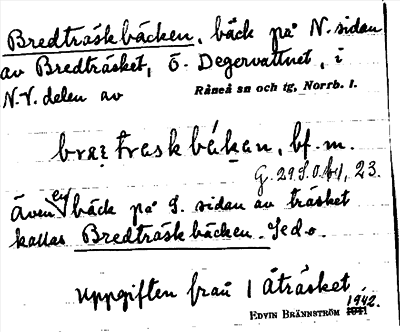 Bredträskbäcken, bäck på N. sidan
av Bredträsket, Ö. Degervattnet, i
N.V. delen av Råneå sn och tg, Norrb. l.
bræ̨ traskbäkan, bf. m.
G. 29 S.O. bl, 23.
Även en bäck på S. sidan av träsket
kallas Bredträskbäcken. Se d. o.
Uppgiften från 1 Åträsket
1942.
EDVIN BRÄNNSTRÖM 1941